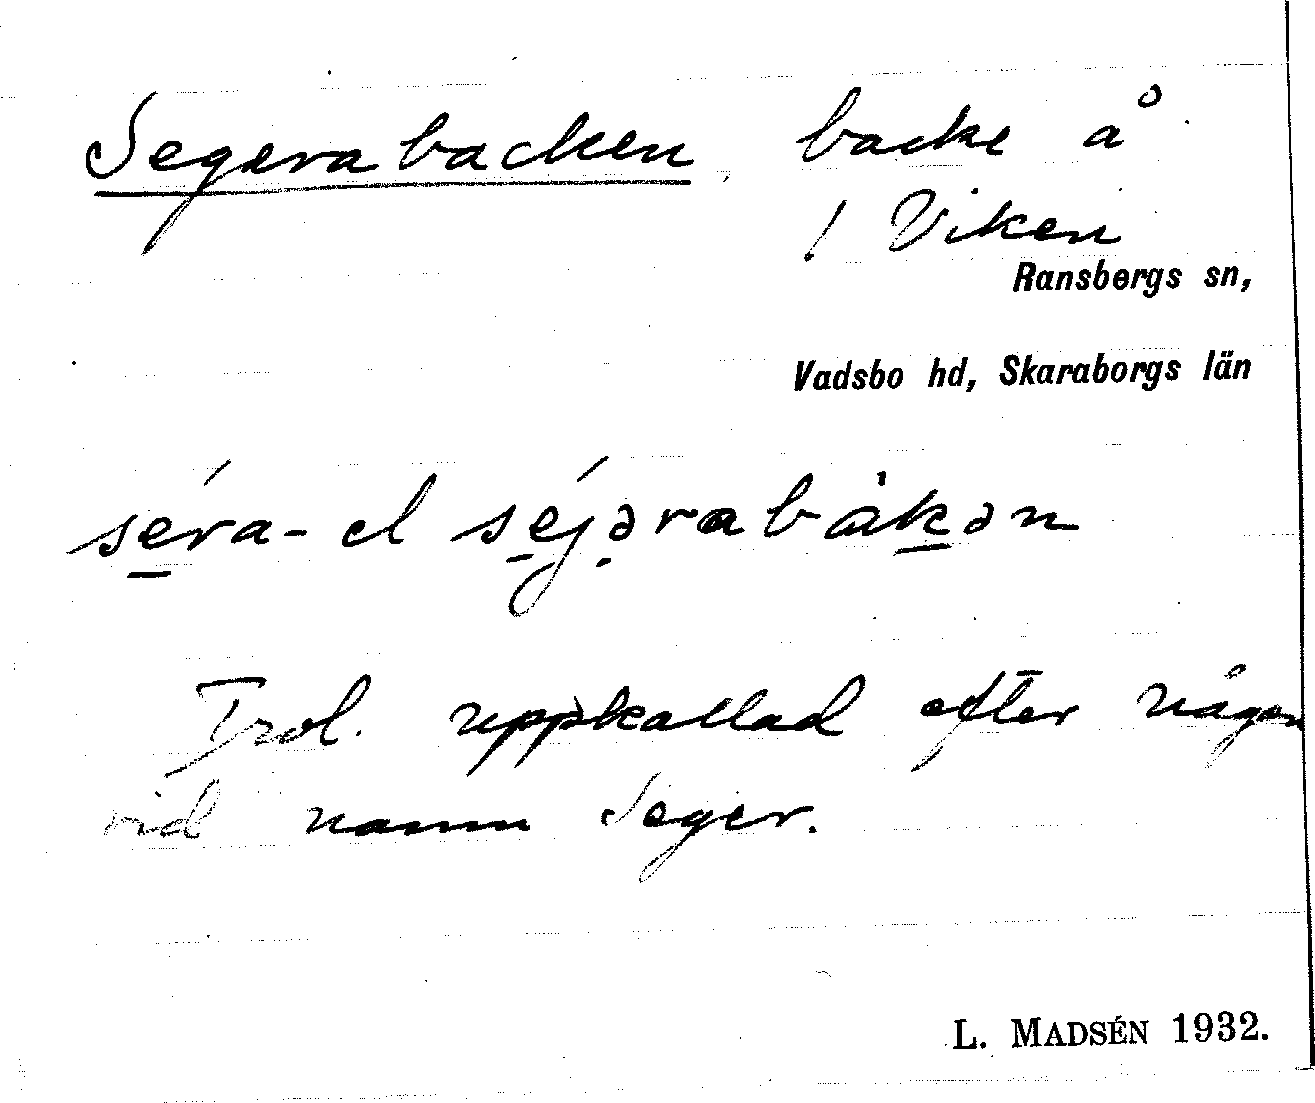 Segerabacken, backe å
1 Viken
Ransbergs sn,
Vadsbo hd, Skaraborgs län
séra- el séjǝrabàkǝn
Trol. uppkallad efter någon
vid namn Seger.
L. MADSÉN 1932.